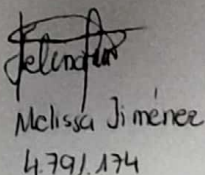 Melissa Jiménez
4.791.174